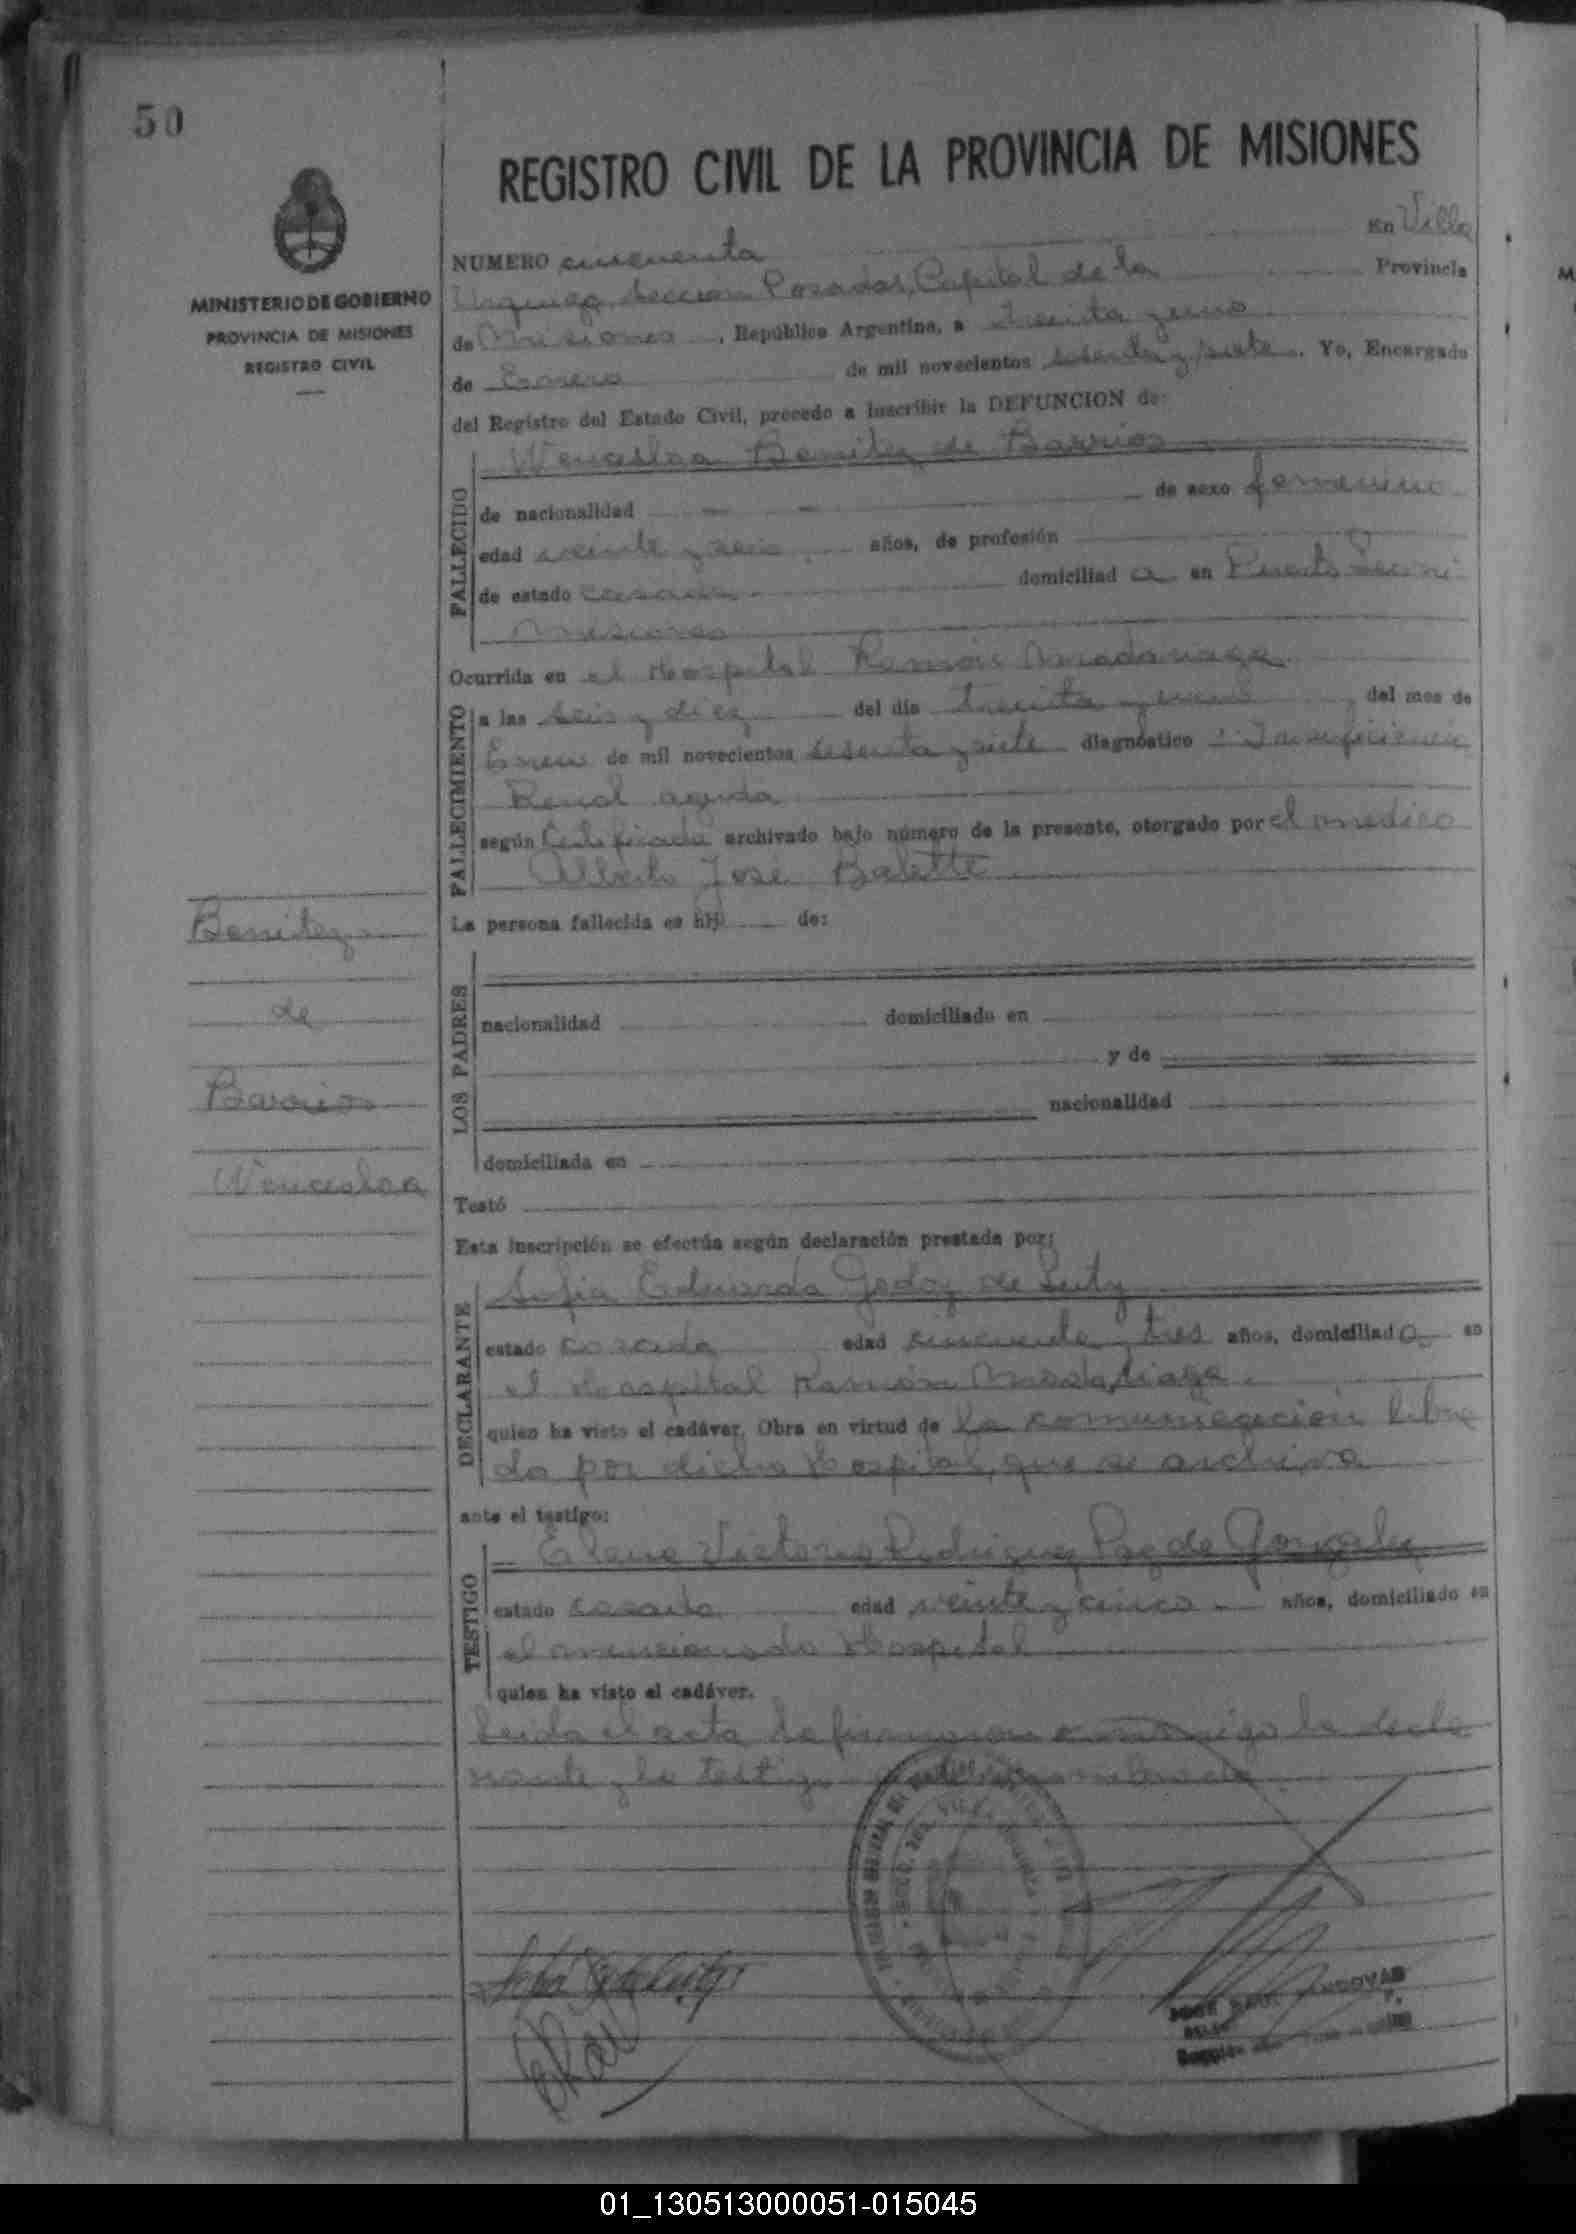 50
REGISTRO CIVIL DE LA PROVINCIA DE MISIONES
MINISTERIO DE GOBIERNO
PROVINCIA DE MISIONES
REGISTRO CIVIL
NUMERO cincuenta En Villa
Urquiza, Sección Posadas, Capital de la Provincia
de Misiones, República Argentina, a treinta y uno
de Enero de mil novecientos sesenta y siete. Yo, Encargado
del Registro del Estado Civil, procedo a inscribir la DEFUNCION de:
FALLECIDO
Wenceslaa Benitez de Barrios
de nacionalidad de sexo femenino
edad veinte y seis años, de profesión
de estado casada domiciliad a en Puerto
Misiones
Ocurrida en el Hospital Ramón Madariaga
FALLECIMIENTO
a las seis y diez del día treinta y uno del mes de
Enero de mil novecientos sesenta y siete diagnóstico "Insuficiencia
Renal aguda
según Certificado archivado bajo número de la presente, otorgado por el medico
Alberto José
La persona fallecida es hij de:
Benitez
de
Barrios
Wenceslaa
LOS PADRES
nacionalidad domiciliado en
y de
nacionalidad
domiciliada en
Testó
Esta inscripción se efectúa según declaración prestada por:
DECLARANTE
Sofia Eduarda Godoy de
estado casada edad cincuenta y tres años, domiciliad a en
el Hospital Ramón Madariaga.
quien ha visto el cadáver. Obra en virtud de la comunicación libra
da por dicho Hospital, que se archiva
ante el testigo:
TESTIGO
Elena Victoria Rodriguez Paz de Gonzalez
estado casada edad veinte y cinco años, domiciliado en
el mencionado Hospital
quien ha visto el cadáver.
Leida el acta la firmaron conmigo la decla
rante y la testigo
01_130513000051-015045